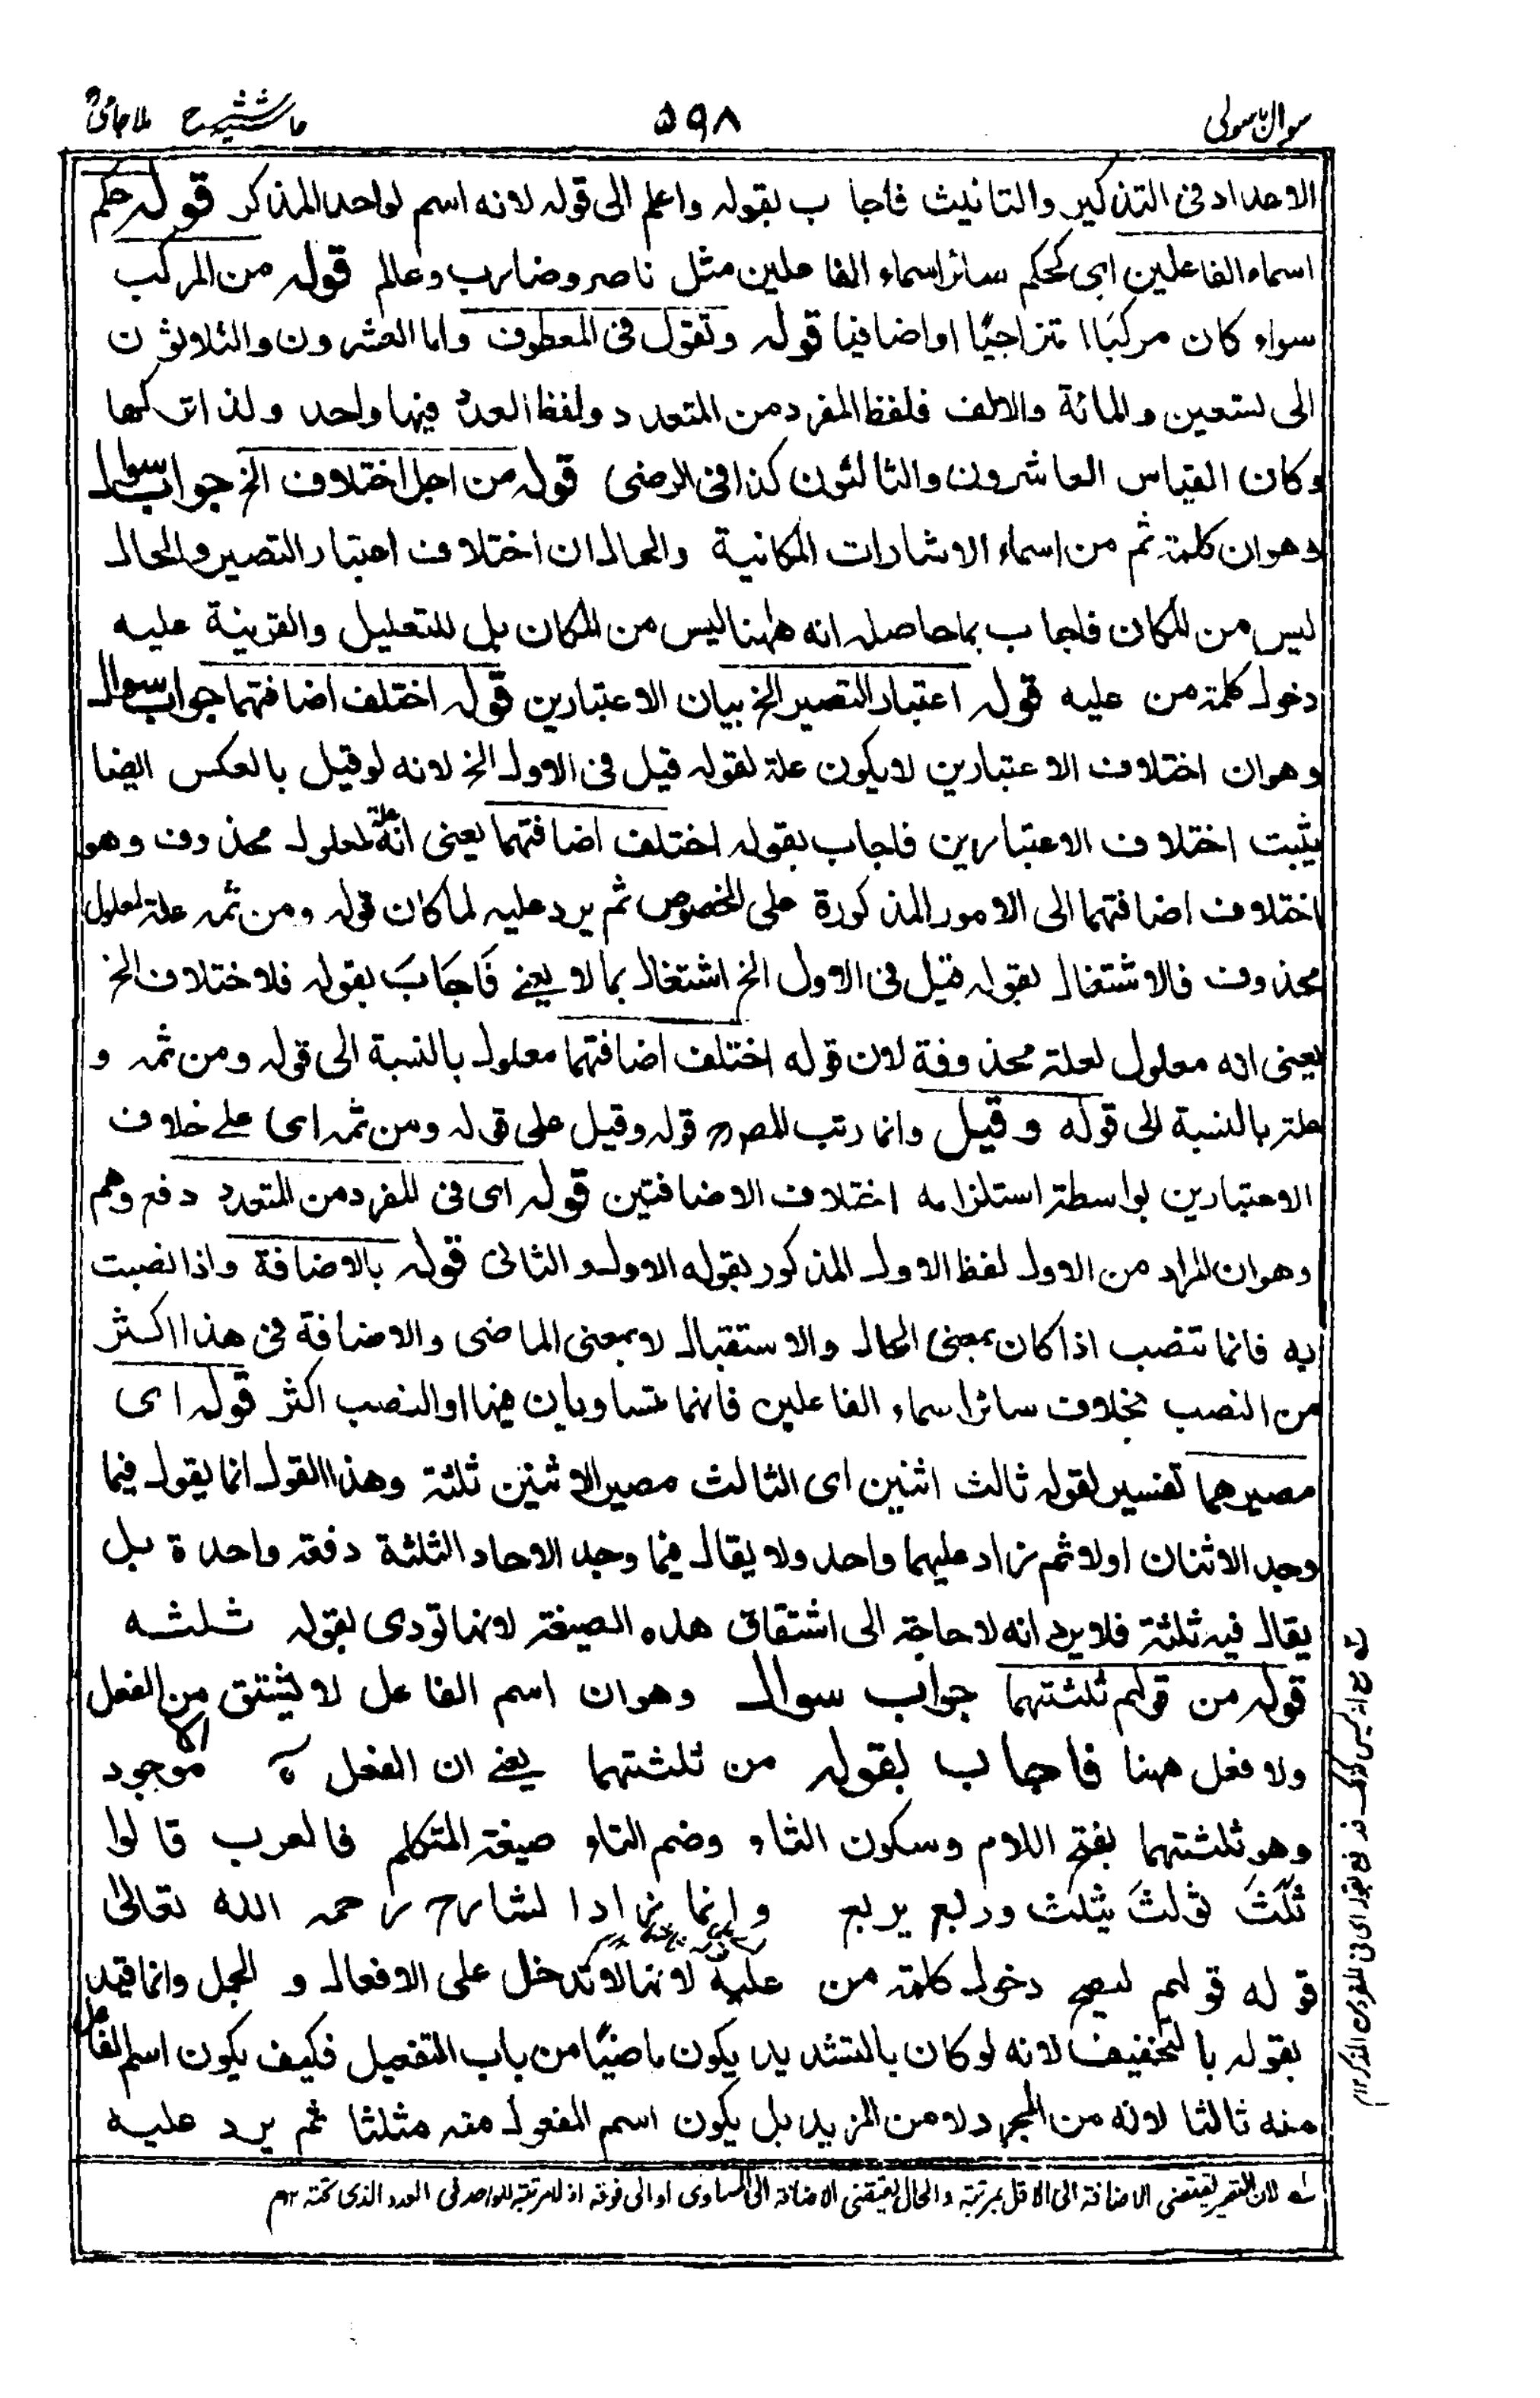 سوال باسولی ۵۹۸ حاشیہ شرح ملا جامیؒ
الاعداد فی التذکیر والتانیث فاجاب بقولہ واعلم الی قولہ لانہ اسم لواحد المذکر قولہ حکم
اسماء الفاعلین ای کحکم سائر اسماء الفاعلین مثل ناصر وضارب وعالم قولہ من المرکب
سواء کان مرکبًا امتزاجیًا او اضافیا قولہ وتقول فی المعطوف واما العشرون والثلاثون
الی تسعین والمائة والالف فلفظ المفرد من المتعدد ولفظ العدد فیہا واحد ولذا ترکہا
وکان القیاس العاشرون والثالثون کذا فی الرضی قولہ من اجل اختلاف الخ جواب سوال
وھوان کلمۃ ثم من اسماء الاشارات المکانیة والحال ان اختلاف اعتبار التصییر والحال
لیس من المکان فاجاب بما حاصلہ انہ ھٰہنا لیس من المکان بل للتعلیل والقرینة علیہ
دخول کلمۃ من علیہ قولہ اعتبار التصییر الخ بیان الاعتبارین قولہ اختلف اضافتہما جواب سوال
وھوان اختلاف الاعتبارین لایکون علۃ لقولہ قیل فی الاول الخ لانہ لوقیل بالعکس ایضا
یثبت اختلاف الاعتبارین فاجاب بقولہ اختلف اضافتہما یعنی انہ علۃ لمعلول محذوف وھو
اختلاف اضافتہما الی الامور المذکورة علی الخصوص ثم یرد علیہ لما کان قولہ ومن ثمہ علۃ لمعلول
محذوف فالاشتغال بقولہ قیل فی الاول الخ اشتغال بمالا یعنے فَاجَابَ بقولہ فلاختلاف الخ
یعنی انہ معلول لعلۃ محذوفة لان قولہ اختلف اضافتہما معلول بالنسبة الی قولہ ومن ثمہ و
علۃ بالنسبة الی قولہ وقیل وانما رتب المصرح قولہ وقیل علی قولہ ومن ثمہ ای علے خلاف
الاعتبارین بواسطۃ استلزامہ اختلاف الاضافتین قولہ ای فی المفرد من المتعدد دفع وھم
وھوان المراد من الاول لفظ الاول المذکور بقولہ الاول والثانی قولہ بالاضافة واذا نصبت
بہ فانما تنصب اذا کان بمعنی الحال والاستقبال لابمعنی الماضی والاضافة فی ھذا اکثر
من النصب بخلاف سائر اسماء الفاعلین فانہما متساویان فیہا او النصب اکثر قولہ ای
مصیرھما تفسیر لقولہ ثالث اثنین ای الثالث مصیر الاثنین ثلثۃ وھذا القول انما یقول فیما
وجد الاثنان اولا ثم زاد علیہما واحد ولا یقال فیما وجد الاحاد الثلثة دفعۃ واحدة بل
یقال فیہ ثلثۃ فلایرد انہ لاحاجۃ الی اشتقاق ھذہ الصیغۃ لانہا تودی بقولہ ثلثہ
قولہ من قولہم ثلثتہما جواب سوال وھوان اسم الفاعل لا یشتق الا من الفعل
ولا فعل ھہنا فاجاب بقولہ من ثلثتہما یعنے ان الفعل موجود
وھو ثلثتہما بفتح اللام وسکون الثاء وضم التاء صیغۃ المتکلم فالعرب قالوا
ثَلَثَ یثلث وربع یربع وانما زاد الشارح رحمہ اللہ تعالیٰ
قولہ قولہم لیصح دخول کلمۃ من علیہ لانہا لاتدخل علی الافعال و الجمل وانما قید
بقولہ بالتخفیف لانہ لوکان بالتشدید یکون ماضیًا من باب التفعیل فکیف یکون اسم الفاعل
منہ ثالثا لانہ من المجرد لامن المزید بل یکون اسم المفعول منہ مثلثا ثم یرد علیہ
لان التصییر یقتضی الاضافۃ الی الاقل بمرتبۃ والحال یقتضی الاضافۃ الی المساوی او الی فوقہ اذ لا مرتبۃ للواحد فی العدد الذی تحتہ ۱۲م